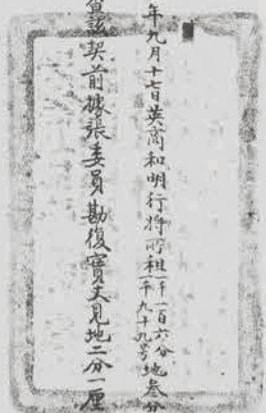 年九月十七日英商和明行將所租一千一百六分地叁分
一千九十九号
查該契前據張委員勘復實丈見地二分一厘